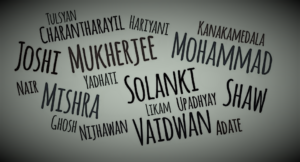 Tulsyan
Charantharayil Hariyani Kanakamedala
Joshi Mukherjee Mohammad
Nair Yadhati Solanki
Mishra Likam Upadhyay Shaw
Ghosh Nijhawan Vaidwan Adate